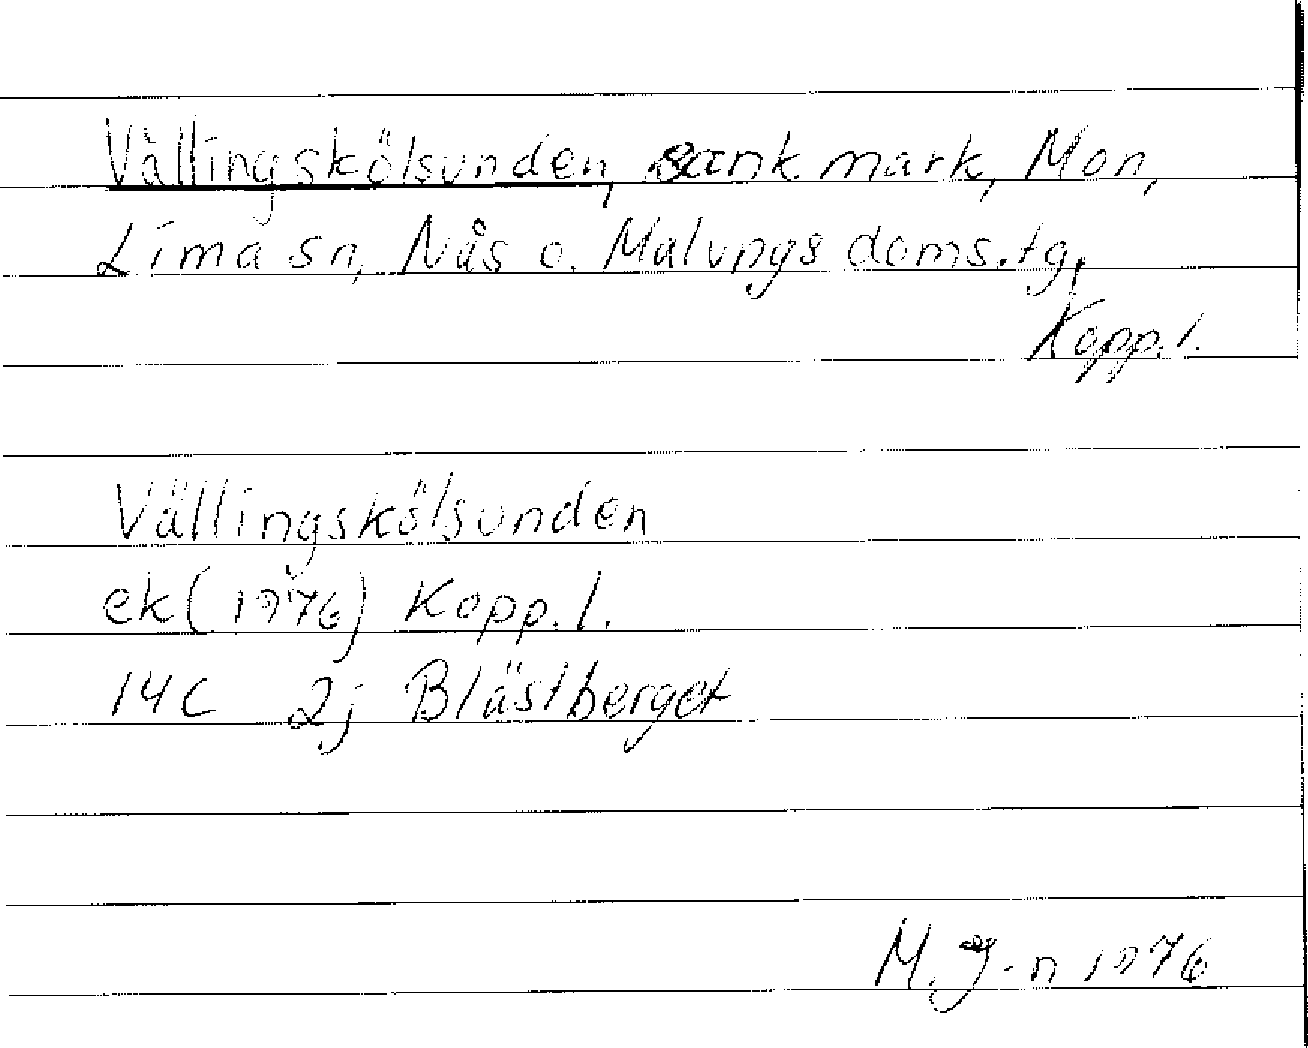 Vällingskölsunden, sank mark, Mon,
Lima sn, Nås o. Malungs doms.tg,
Kopp.l.
Vällingskölsunden
ek (1976) Kopp.l.
14C 2j Blästberget
M. J-n 1976